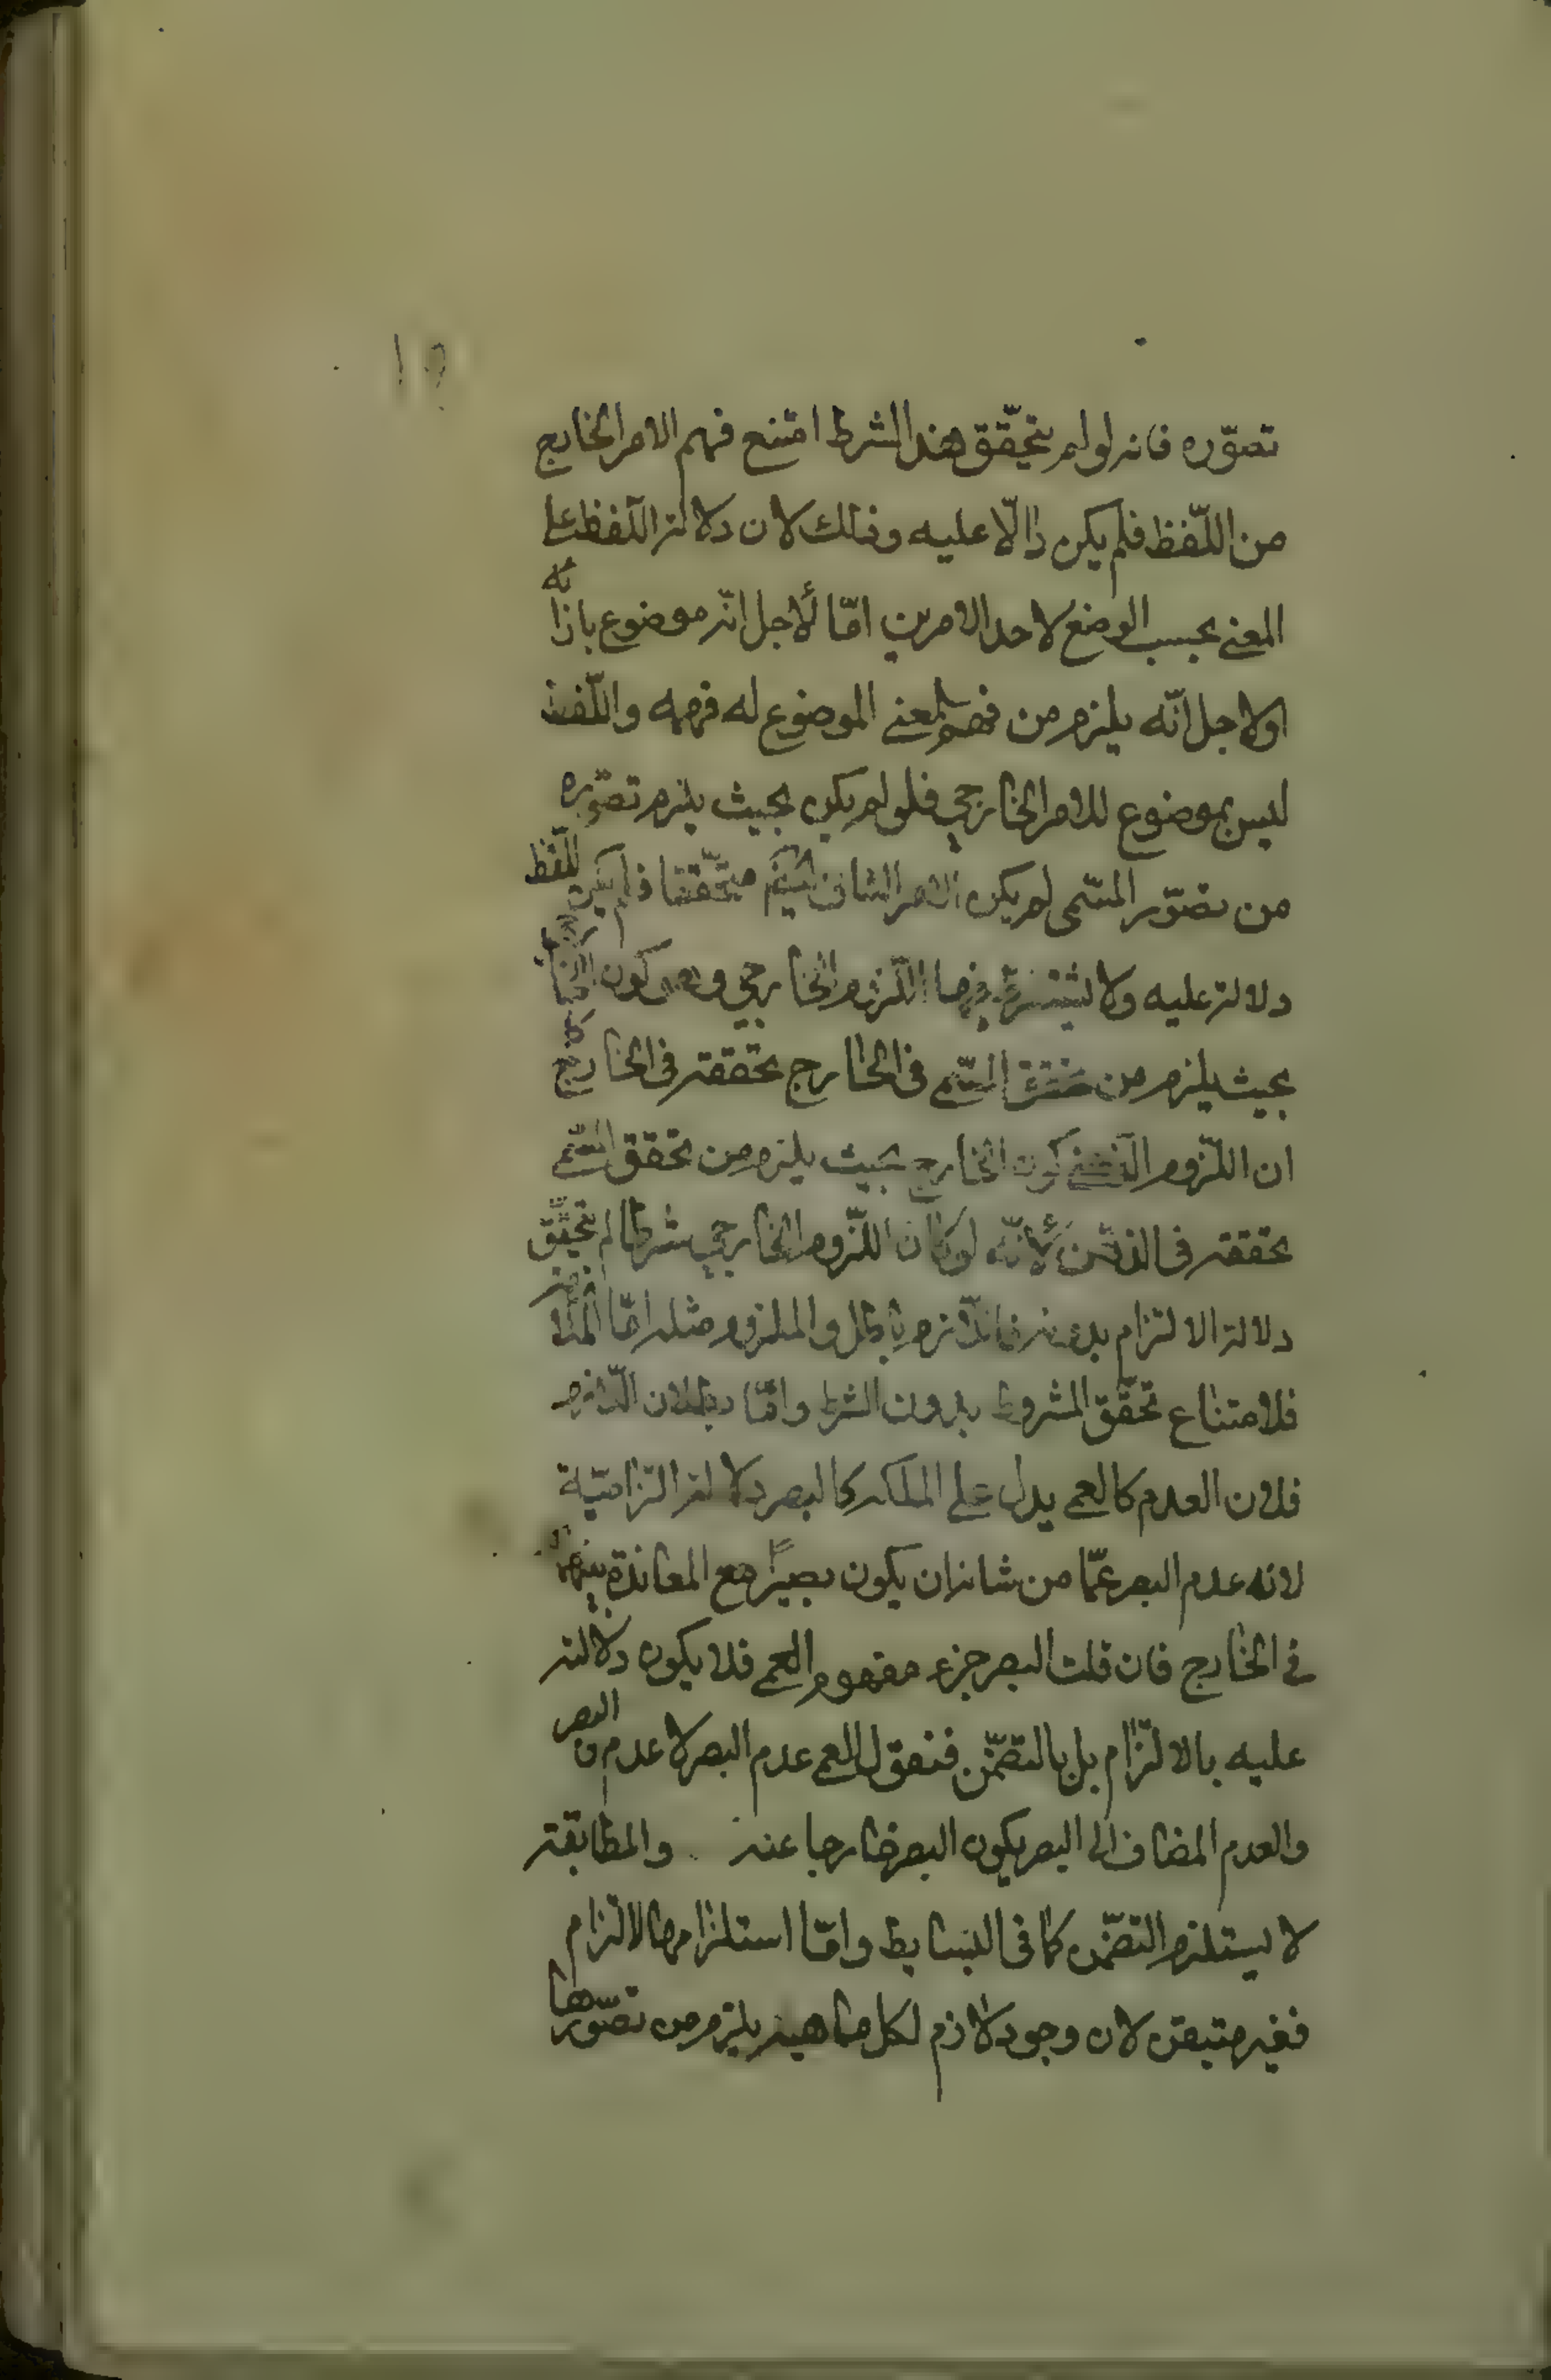 تصوّره فانه لو لم يتحقّق هذا الشرط امتنع فهم الامر الخارج
من اللّفظ فلم يكن دالّا عليه وذلك لان دلالة اللّفظ على
المعنى بحسب الوضع لاحد الامرين امّا لأجل انّه موضوع بازائه
او لاجل انّه يلزم من فهم المعنى الموضوع له فهمه واللّفظ
ليس بموضوع للامر الخارجي فلو لم يكن بحيث يلزم تصوّره
من تصوّر المسّمى لم يكن الامر الثانى متحّققا فلم يكن للّفظ
دلالة عليه ولا يشترط فيها اللّزوم الخارجي وهو كون
بحيث يلزم من تحقق المسّمى فى الخارج تحققه فى الخارج كما
ان اللّزوم الذّهنى كون الخارج بحيث يلزم من تحقق المسّمى
تحققه فى الذهن لأنّه لو كان اللّزوم الخارجي شرطا لم يتحقّق
دلالة الالتزام بدونه فاللّازم باطل والملزوم مثله امّا الملازمة
فلامتناع تحقّق المشروط بدون الشرط وامّا بطلان اللّازم
فلان العدم كالعمى يدل على الملكه كالبصر دلالة التزاميّة
لانه عدم البصر عمّا من شانه ان يكون بصيرًا مع المعاندة بينهما
فى الخارج فان قلت البصر جزء مفهوم العمى فلا يكون دلالته
عليه بالالتزام بل بالتضمّن فنقول العمى عدم البصر لا عدم و البصر
والعدم المضاف الى البصر يكون البصر خارجا عنه والمطابقة
لا يستلزم التضمّن كما فى البسايط وامّا استلزامها الالتزام
فغير متيقن لان وجود لازم لكل ماهيه يلزم من تصوّرها